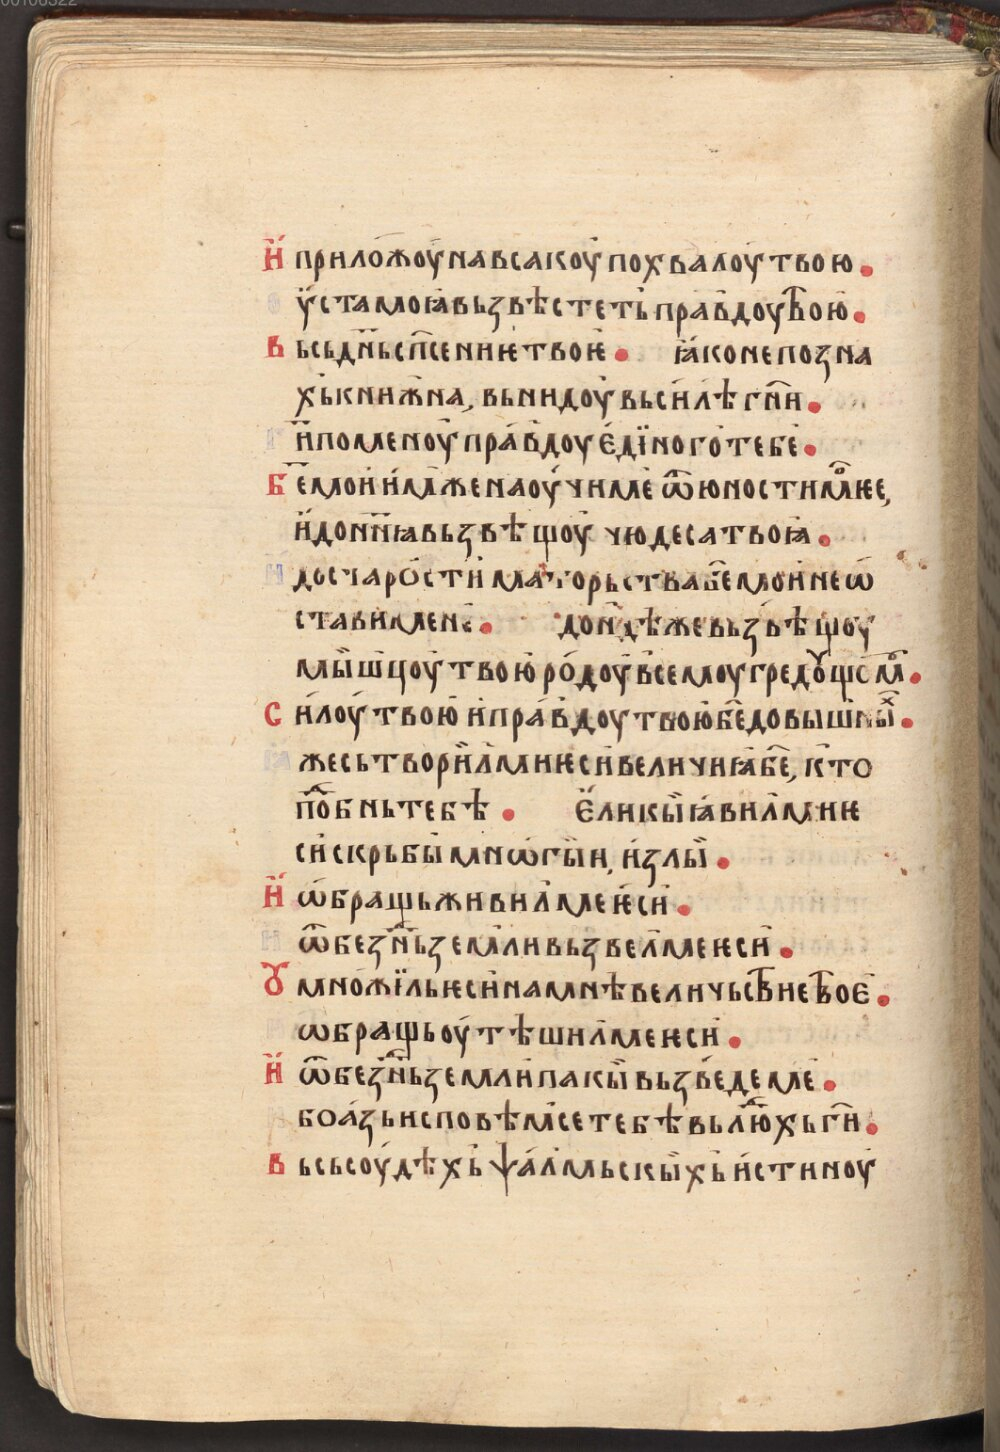 00106322
И҆ приложоу навсакоу похвалоу твою.
оуста моꙗ възвѣстеть правдоу твою.
Вьсь дн҃ь сп҃сениѥ твоѥ. ꙗко не позна
хь книжна, вьнидоу вь силѣ гн҃и.
и поменоу правдоу единого тебе.
Бе҃ мои имаже наоучи ме ѿ юности моѥе,
и до нн҃ꙗ възвѣщоу чюдеса твоꙗ.
до старости и маторьства бе҃ мои не ѡ
стави мене. дондѣже възвѣщоу
мышцоу твою родоу всемоу гредꙋщомꙋ.
Силоу твою и правдоу твою бе҃ до вышних.
же сьтворил ми ѥси величиꙗ бе҃, кто
подобнь тебѣ. елики ꙗвил ми ѥ
си скрьби мнѡгы и, и злы.
И ѡбращь живил ме ѥси.
ѿ безнь земли възвел ме ѥси.
Ꙋмножїль ѥси на мнѣ величьство твоѥ.
ѡбращь оутѣшил ме ѥси.
И ѿ безнь земли пакы възведе ме.
бо азь исповѣм се тебѣ вь людехь гн҃и.
Вь сьсоудѣхь ѱалмьскыхь истиноу